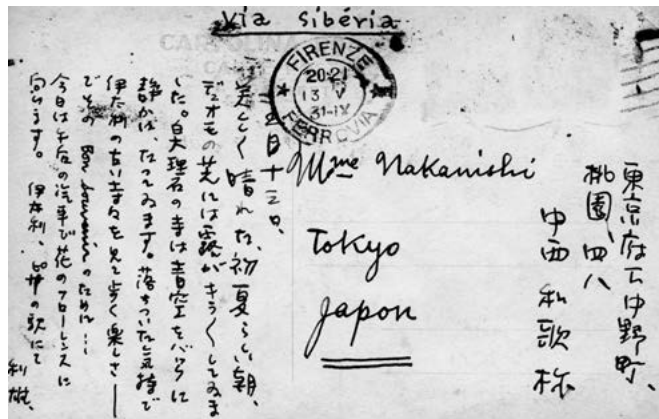 Via Sibéria
CARTOLINA
FIRENZE
20-21
13 V
31-IX
FERROVIA
Mme Nakanishi
Tokyo
Japon
東京府下中野町、
桃園、四八
中西 和歌 様
五月十三日、
美しく晴れた、初夏らしい朝、
デュオモの芝には露がきらくしてゐま
した。白大理石の寺は青空をバツクに
静かに、たつてゐます。落ちついた気持で
伊太利の古い寺々を見て歩く楽しさ――
でその Bon souvenir のために…
今日は午后の汽車で花のフローレンスに
向ひます。 伊太利、ピサの駅にて
利雄、